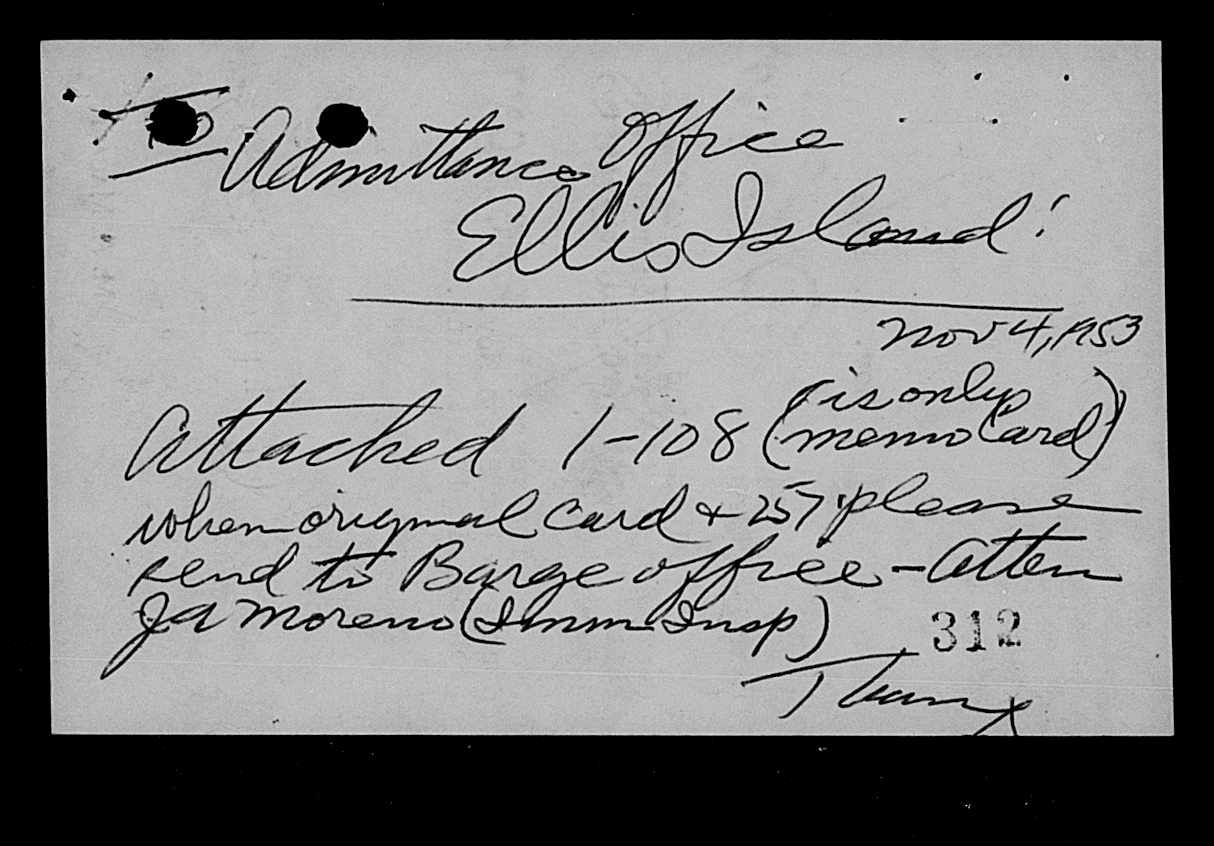 To Admittance Office
Ellis Island!
Nov 4, 1953
Attached 1-108 (is only memo Card)
when original card + 257 please
send to Barge office - Atten
JA Moreno (Imm Insp)
312
Thanx